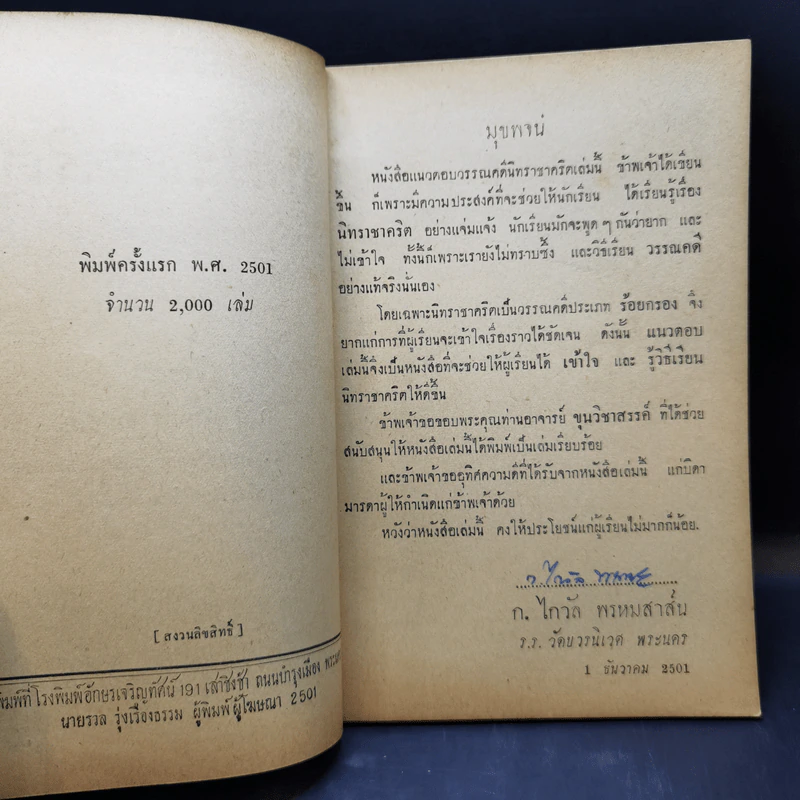 พิมพ์ครั้งแรก พ.ศ. 2501
จำนวน 2,000 เล่ม
[ สงวนลิขสิทธิ์ ]
พิมพ์ที่ โรงพิมพ์อักษรเจริญทัศน์ 191 เสาชิงช้า ถนนบำรุงเมือง
นายรวล รุ่งเรืองธรรม ผู้พิมพ์ ผู้โฆษณา 2501
มุขพจน์
หนังสือแนวตอบวรรณคดีนิทราชาคริตเล่มนี้ ข้าพเจ้าได้เขียน
ขึ้น ก็เพราะมีความประสงค์ที่จะช่วยให้นักเรียน ได้เรียนรู้เรื่อง
นิทราชาคริต อย่างแจ่มแจ้ง นักเรียนมักจะพูด ๆ กันว่ายาก และ
ไม่เข้าใจ ทั้งนี้ก็เพราะเรายังไม่ทราบซึ้ง และวิธีเรียน วรรณคดี
อย่างแท้จริงนั่นเอง
โดยเฉพาะนิทราชาคริตเป็นวรรณคดีประเภท ร้อยกรอง จึง
ยากแก่การที่ผู้เรียนจะเข้าใจเรื่องราวได้ชัดเจน ดังนั้น แนวตอบ
เล่มนี้จึงเป็นหนังสือที่จะช่วยให้ผู้เรียนได้ เข้าใจ และ รู้วิธีเรียน
นิทราชาคริตให้ดีขึ้น
ข้าพเจ้าขอขอบพระคุณท่านอาจารย์ ขุนวิชาสรรค์ ที่ได้ช่วย
สนับสนุนให้หนังสือเล่มนี้ได้พิมพ์เป็นเล่มเรียบร้อย
และข้าพเจ้าขออุทิศความดีที่ได้รับจากหนังสือเล่มนี้ แก่บิดา
มารดาผู้ให้กำเนิดแก่ข้าพเจ้าด้วย
หวังว่าหนังสือเล่มนี้ คงให้ประโยชน์แก่ผู้เรียนไม่มากก็น้อย.
ก. ไกวัล พรหมสาส์น
ร.ร. วัดบวรนิเวศ พระนคร
1 ธันวาคม 2501